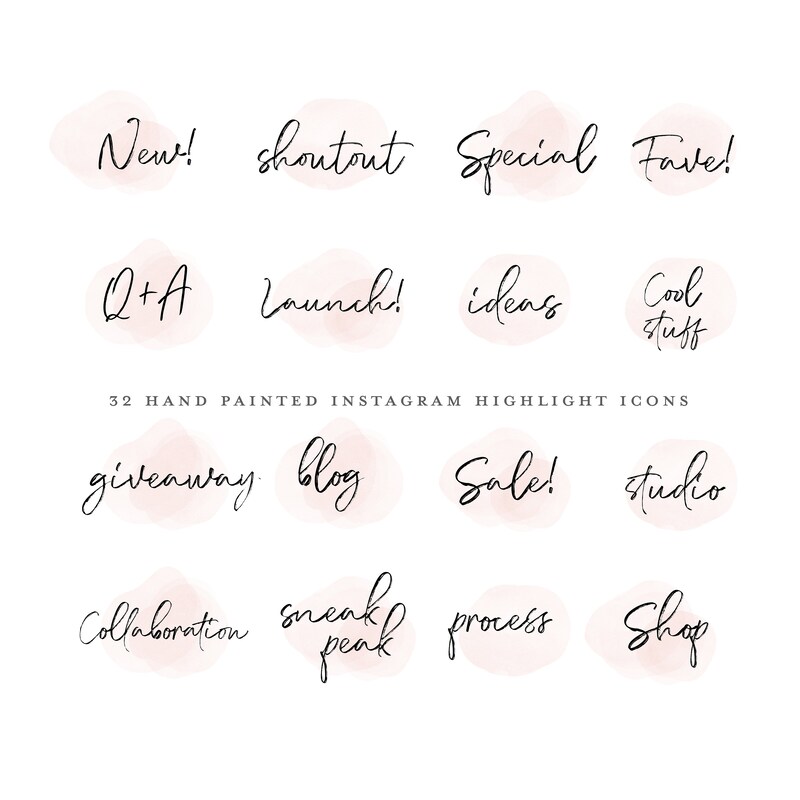 New!
shoutout
Special
Fave!
Q+A
Launch!
ideas
Cool
stuff
32 HAND PAINTED INSTAGRAM HIGHLIGHT ICONS
giveaway
blog
Sale!
studio
Collaboration
sneak
peak
process
Shop